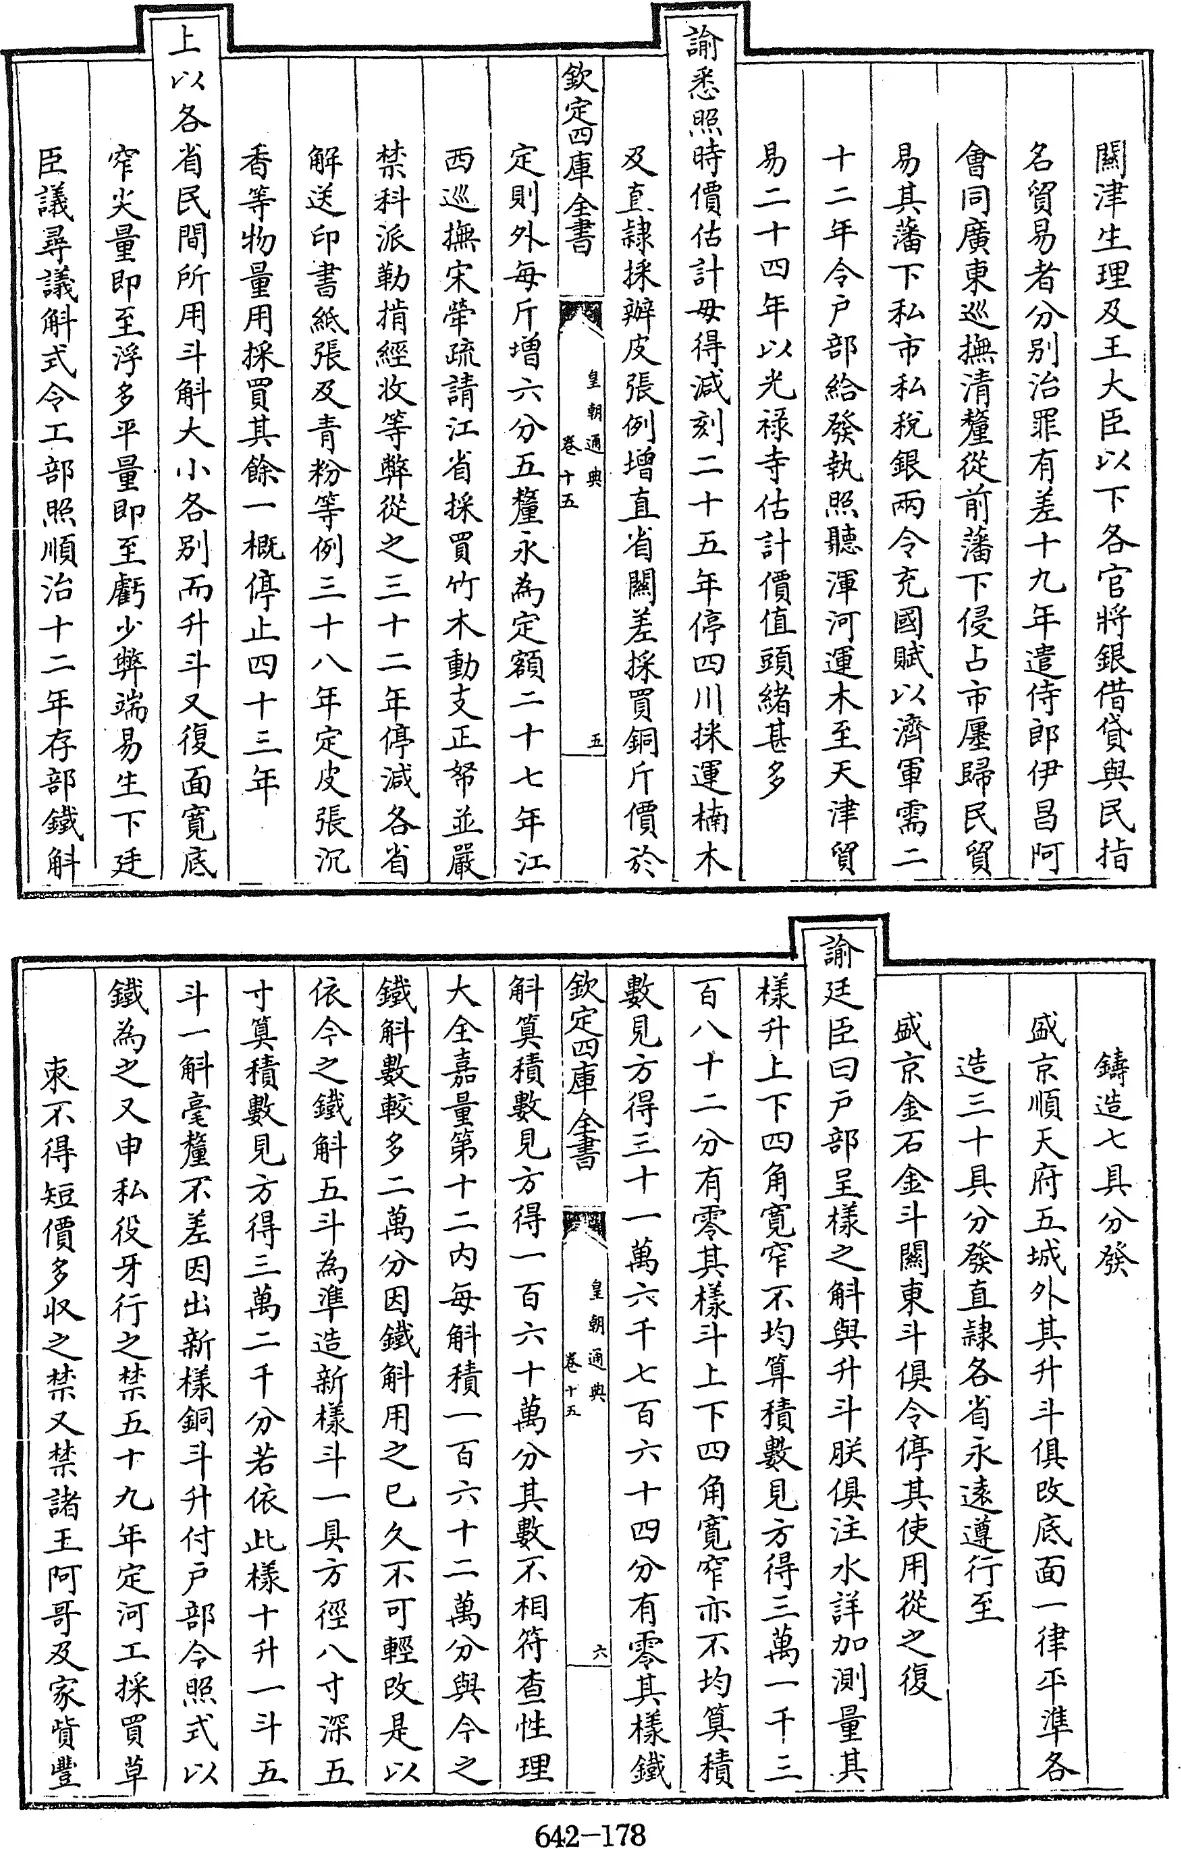 關津生理及王大臣以下各官將銀借貸與民指
名貿易者分別治罪有差十九年遣侍郎伊昌阿
會同廣東巡撫清釐從前藩下侵占市廛歸民貿
易其藩下私市私稅銀兩令充國賦以濟軍需二
十二年令戶部給發執照聽渾河運木至天津貿
易二十四年以光祿寺估計價值頭緒甚多
諭悉照時價估計毋得減刻二十五年停四川採運楠木
及直隸採辦皮張例增直省關差採買銅斤價於
欽定四庫全書
皇朝通典
卷十五
五
定則外每斤增六分五釐永為定額二十七年江
西巡撫宋犖疏請江省採買竹木動支正帑並嚴
禁科派勒掯經收等弊從之三十二年停減各省
解送印書紙張及青粉等例三十八年定皮張沉
香等物量用採買其餘一概停止四十三年
上以各省民間所用斗斛大小各別而升斗又復面寬底
窄尖量即至浮多平量即至虧少弊端易生下廷
臣議尋議斛式令工部照順治十二年存部鐵斛
鑄造七具分發
盛京順天府五城外其升斗俱改底面一律平準各
造三十具分發直隸各省永遠遵行至
盛京金石金斗關東斗俱令停其使用從之復
諭廷臣曰戶部呈樣之斛與升斗朕俱注水詳加測量其
樣升上下四角寬窄不均算積數見方得三萬一千三
百八十二分有零其樣斗上下四角寬窄亦不均算積
數見方得三十一萬六千七百六十四分有零其樣鐵
欽定四庫全書
皇朝通典
卷十五
六
斛算積數見方得一百六十萬分其數不相符查性理
大全嘉量第十二內每斛積一百六十二萬分與今之
鐵斛數較多二萬分因鐵斛用之已久不可輕改是以
依今之鐵斛五斗為準造新樣斗一具方徑八寸深五
寸算積數見方得三萬二千分若依此樣十升一斗五
斗一斛毫釐不差因出新樣銅斗升付戶部令照式以
鐵為之又申私役牙行之禁五十九年定河工採買草
束不得短價多收之禁又禁諸王阿哥及家貲豐
642-178